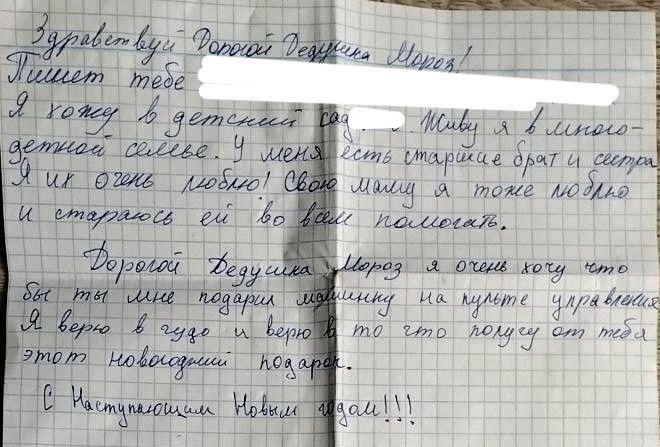 Здравствуй Дорогой Дедушка Мороз!
Пишет тебе
Я хожу в детский сад. Живу я в много-
детной семье. У меня есть старшие брат и сестра
Я их очень люблю! Свою маму я тоже люблю
и стараюсь ей во всем помогать.
Дорогой Дедушка Мороз я очень хочу что
бы ты мне подарил машинку на пульте управления
Я верю в чудо и верю в то что получу от тебя
этот новогодний подарок.
С Наступающим Новым годом!!!